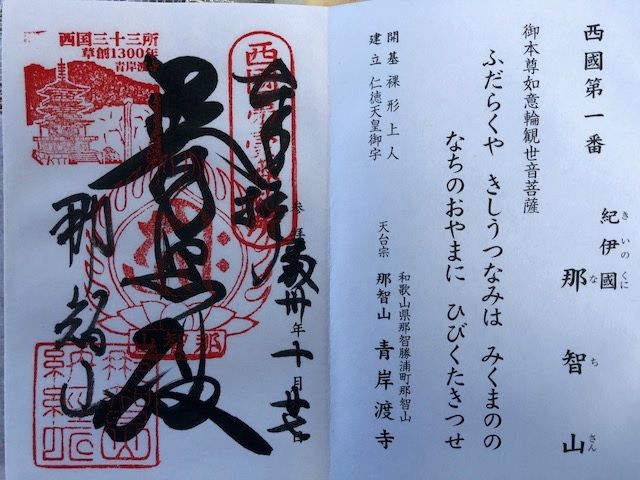 西國第一番
紀伊國 那智山
きいのくに なちさん
御本尊如意輪観世音菩薩
ふだらくや きしうつなみは みくまのの
なちのおやまに ひびくたきつせ
開基 裸形上人
建立 仁徳天皇御宇
天台宗 那智山 青岸渡寺
和歌山県那智勝浦町那智山
西国三十三所
草創1300年
青岸渡寺
奉拝
参拝
年十月廿七日
普照殿
那智山
那智山